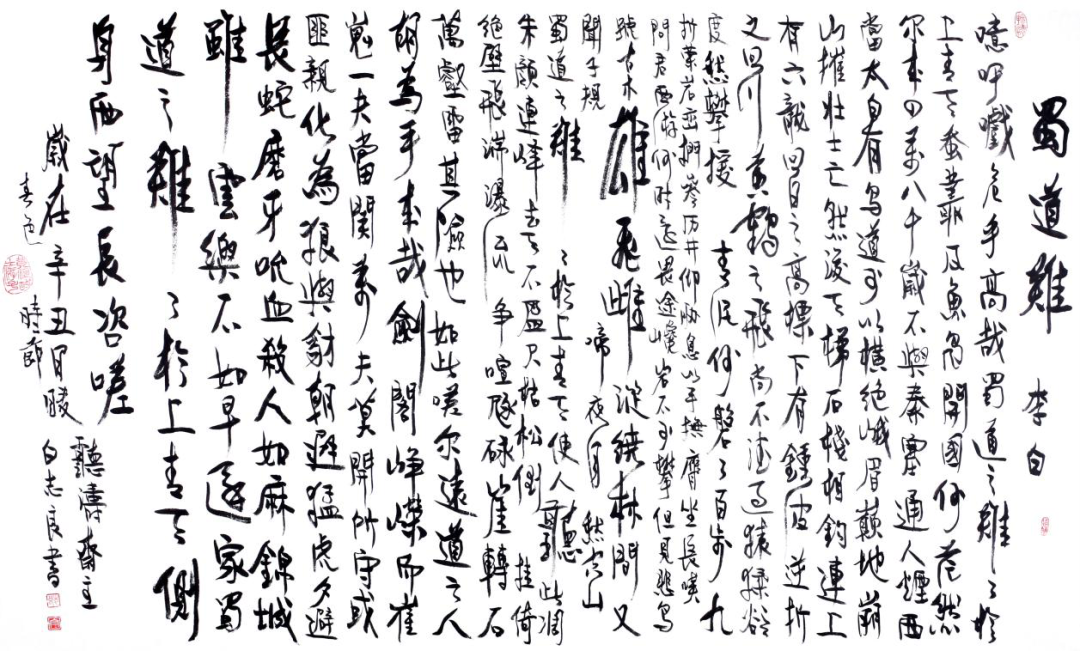 蜀道難 李白
噫吁戲危乎高哉蜀道之難〻於
上青天蚕叢及魚鳧開國何茫然
尔来四萬八千歲不與秦塞通人煙西
當太白有鳥道可以橫絕峨眉巔地崩
山摧壯士亡然後天梯石棧相鈎連上
有六龍回日之高標下有衝波逆折
之回川黃鶴之飛尚不得過猿猱欲
度愁攀援青泥何磐〻百步九
折縈岩巒捫參历井仰脅息以手撫膺坐長嘆
問君西遊何时還畏途巉岩不可攀但見悲鳥
號古木雄飛雌從繞林間又
聞子規啼夜月愁空山
蜀道之難〻於上青天使人聽此凋
朱顏連峰去天不盈尺枯松倒挂倚
絕壁飛湍瀑流爭喧豗砯崖轉石
萬壑雷其險也如此嗟尔遠道之人
胡為乎来哉劍閣崢嶸而崔
嵬一夫當關萬夫莫開所守或
匪親化為狼與豺朝避猛虎夕避
長蛇磨牙吮血殺人如麻錦城
雖雲樂不如早還家蜀
道之難〻於上青天側
身西望長咨嗟
歲在辛丑月
時節
聽濤齋主
白志良書